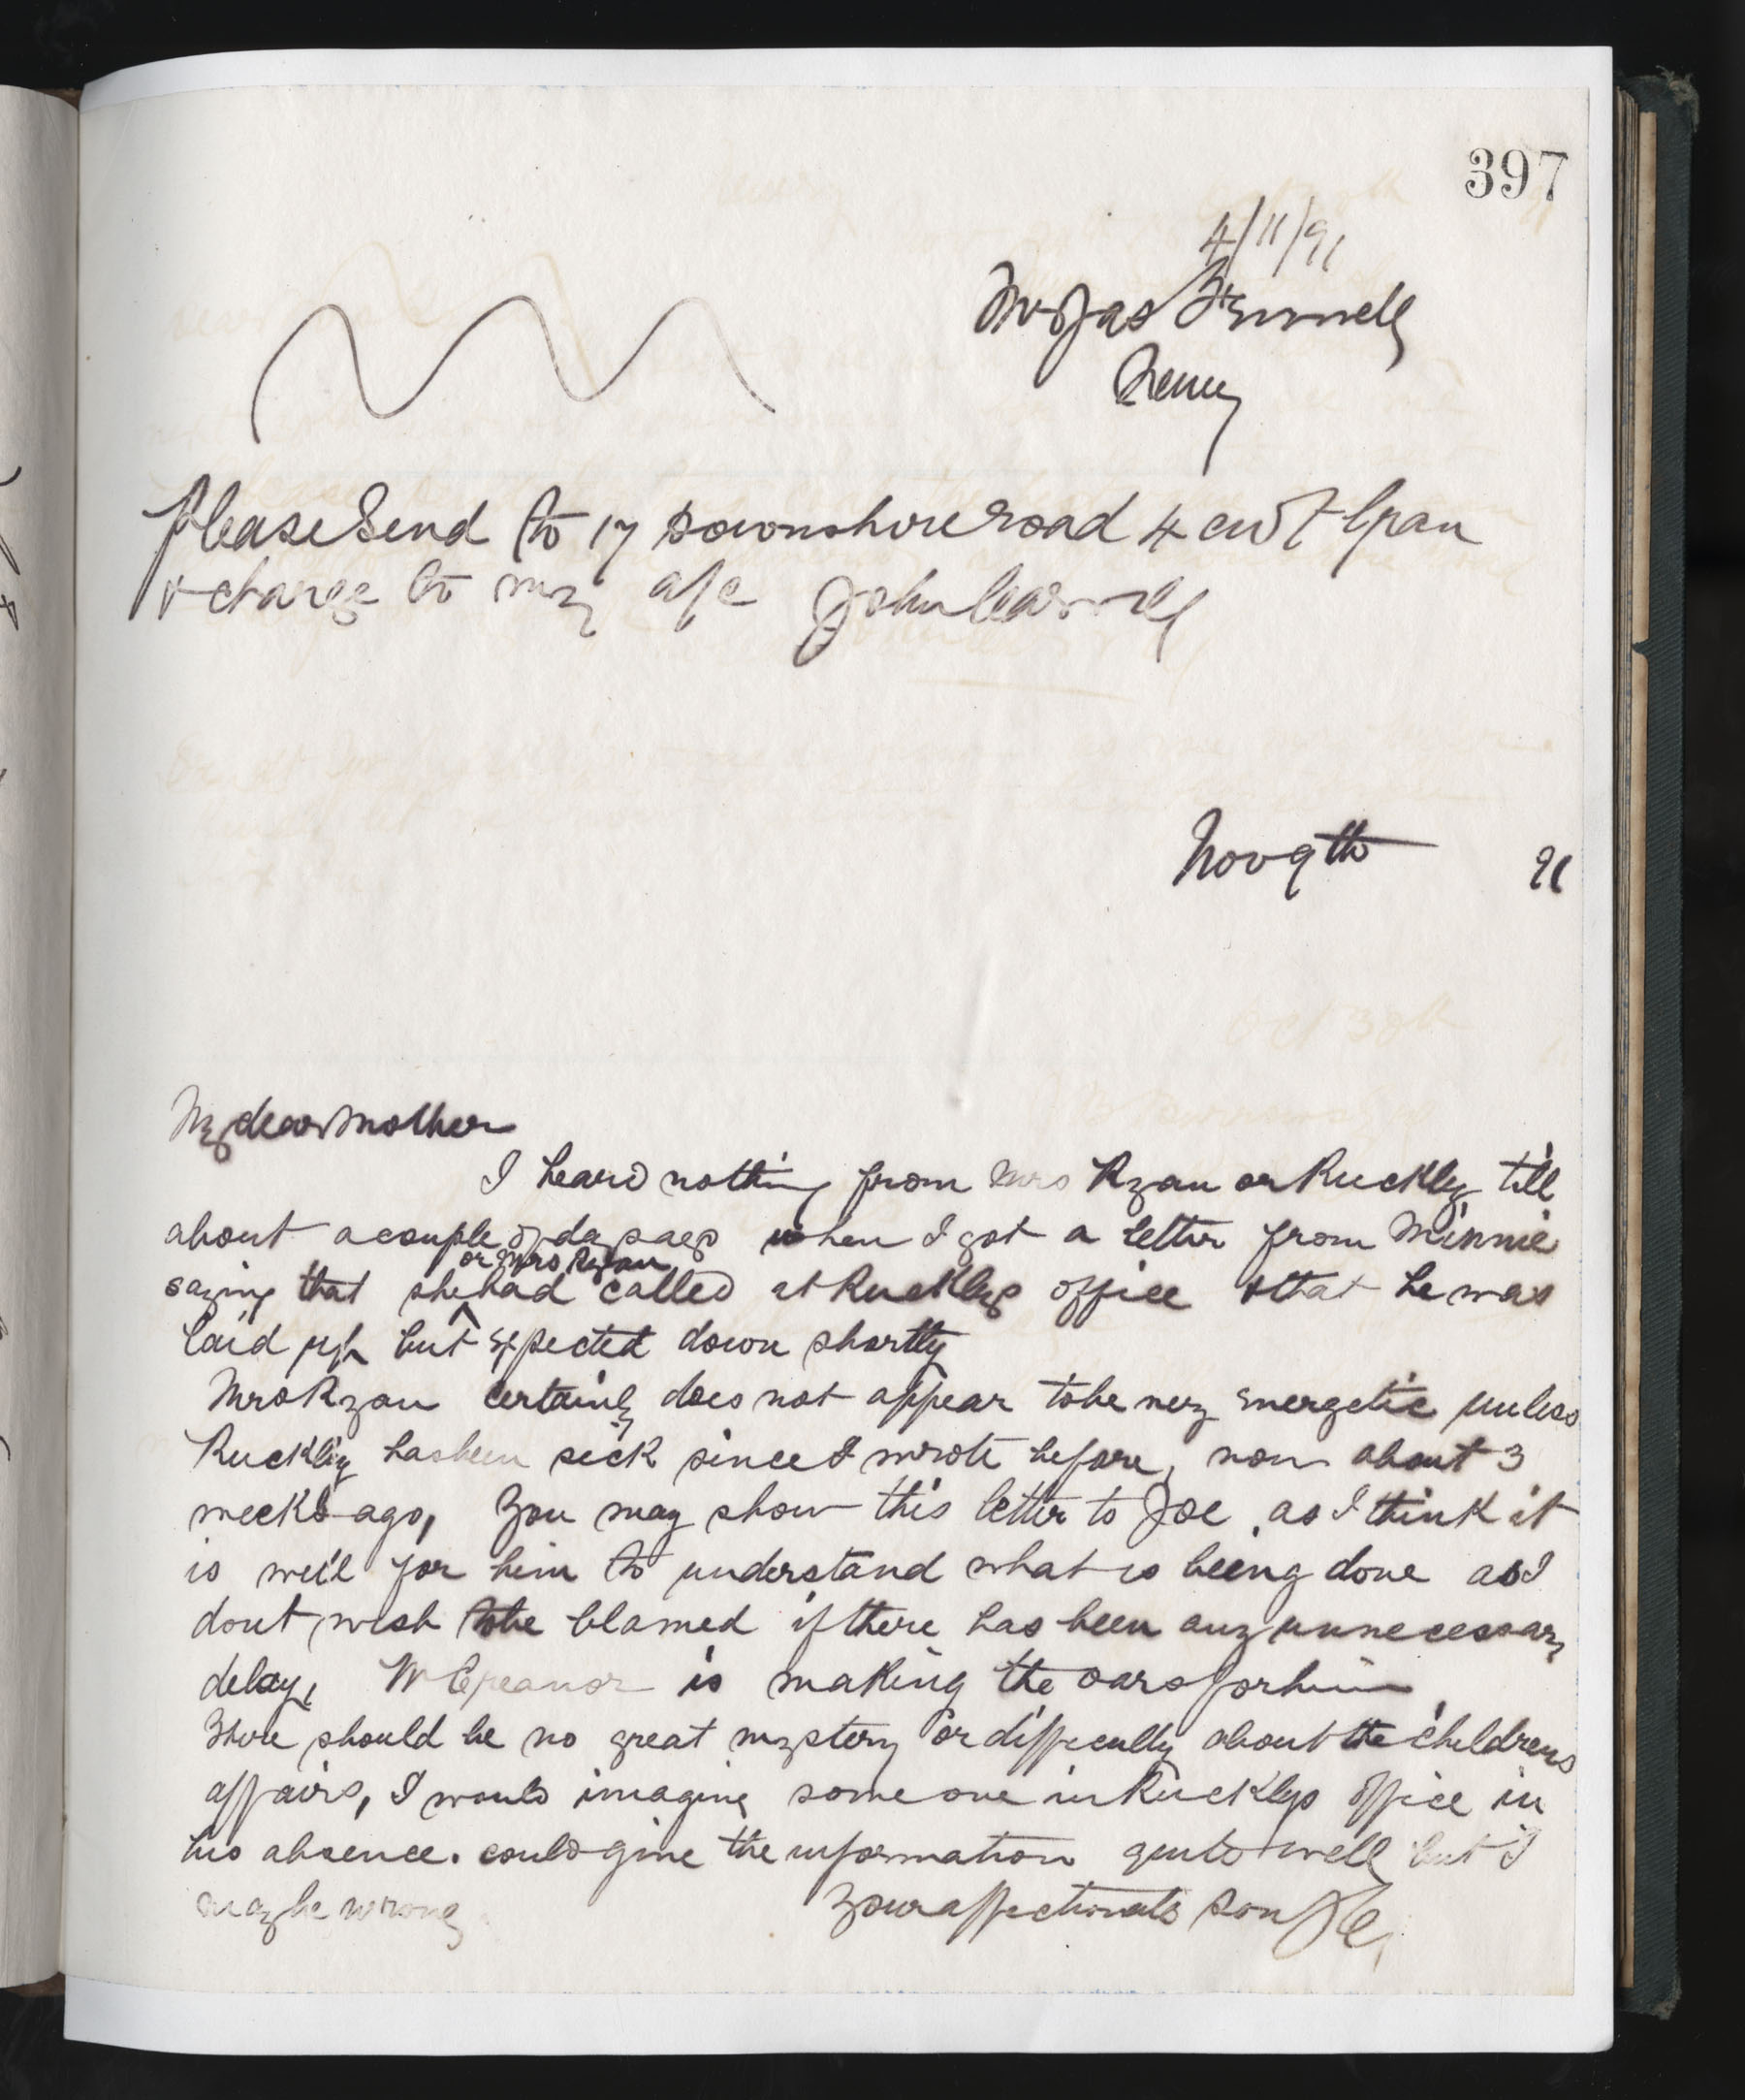 397
4/11/91
Mr Jas Fennell
Newry
Please Send to 17 Downshire road 4 cwt bran
& charge to my a/c John Carvill
Nov 9th 91
My dear Mother
I heard nothing from Mrs Ryan or Ruckley till
about a couple of days ago when I got a letter from Minnie
or Mrs Ryan
saying that she had called at Ruckleys office & that he was
laid up but expected down shortly
Mrs Ryan certainly does not appear to be very energetic unless
Ruckley has been sick since I wrote before, now about 3
weeks ago, You may show this letter to Joe, as I think it
is well for him to understand what is being done as I
dont wish to be blamed if there has been any unnecessary
delay, is making the oars for him
There should be no great mystery or difficulty about the childrens
affairs, I would imagine some one in Ruckleys office in
his absence. could give the information quite well but I
may be wrong Your affectionate son JC,